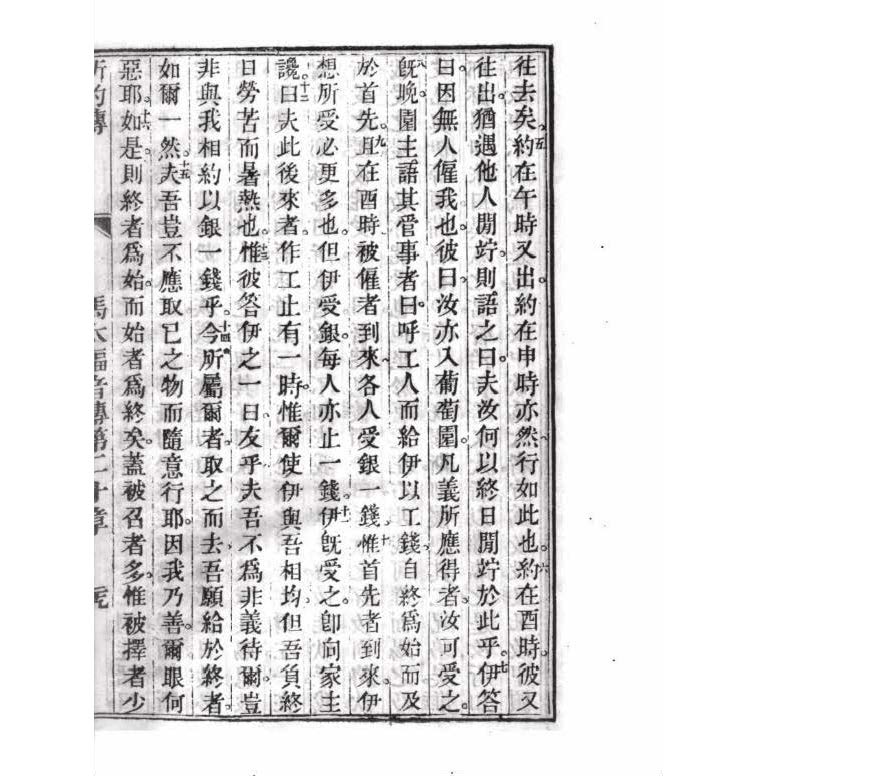 徃去矣。五約在午時又出。約在申時亦然、行如此也。六約在酉時。彼又
徃出。猶遇他人閒竚。則語之曰。夫汝何以終日閒竚於此乎。七伊答
曰。因無人僱我也。彼曰。汝亦入葡萄園。凡義所應得者。汝可受之。
八旣晚。園主語其管事者曰。呼工人而給伊以工錢、自終爲始而及
於首先。九且在酉時被僱者到來、各人受銀一錢。十惟首先者到來。伊
想所受必更多也。但伊受銀。每人亦止一錢。十一伊旣受之。卽向家主
讒。十二曰。夫此後來者。作工止有一時。惟爾使伊與吾相均。但吾負終
日勞苦而暑熱也。十三惟彼答伊之一曰。友乎。夫吾不爲非義待爾。豈
非與我相約以銀一錢乎。十四今所屬爾者。取之而去、吾願給於終者。
如爾一然。十五夫吾豈不應取已之物而隨意行耶。因我乃善。爾眼何
惡耶。十六如是。則終者爲始。而始者爲終矣。蓋被召者多。惟被擇者少
新約傳 馬太福音傳第二十章